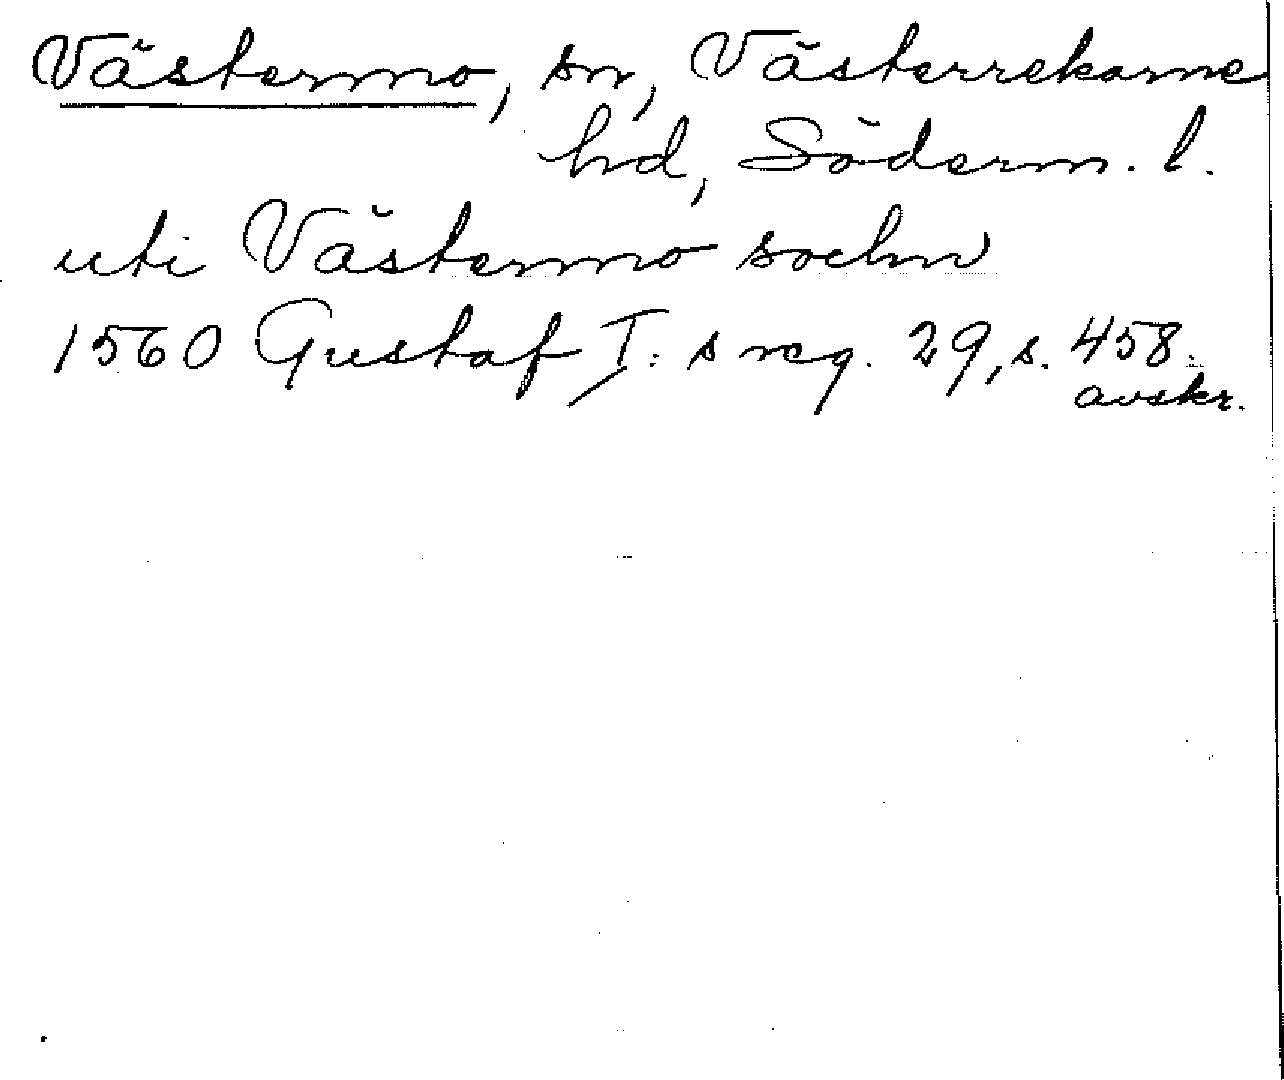 Västermo, sn, Västerrekarne
hd, Söderm. l.
uti Västermo sochn
1560 Gustaf I:s reg. 29, s. 458.
avskr.